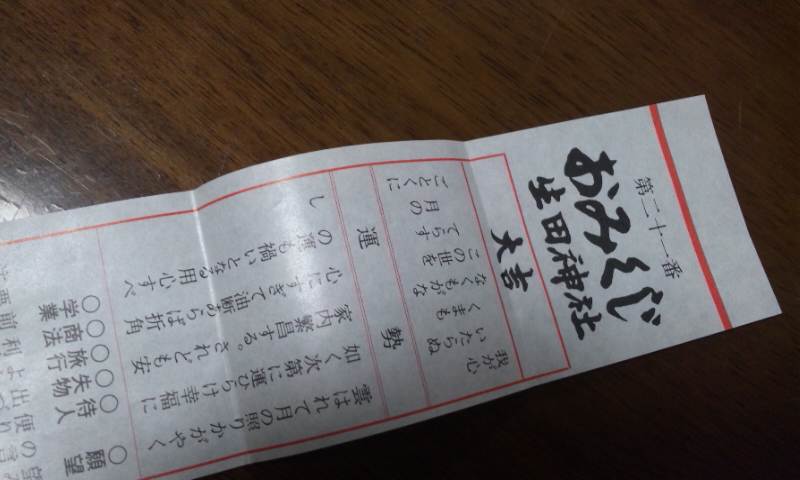 第二十一番
おみくじ
生田神社
大吉
我が心
いたらぬ
くまも
なくもがな
この世を
てらす
月の
ごとくに
運勢
雲はれて月の照りかがやく
如く次第に運ひらけ幸福に
家内繁昌する。されども安
心にすぎて油断あらば折角
の運も禍いとなる用心すべ
し
○願望 望
○待人 便の
○失物 出
○旅行 よ
○商法 利
○学業 前